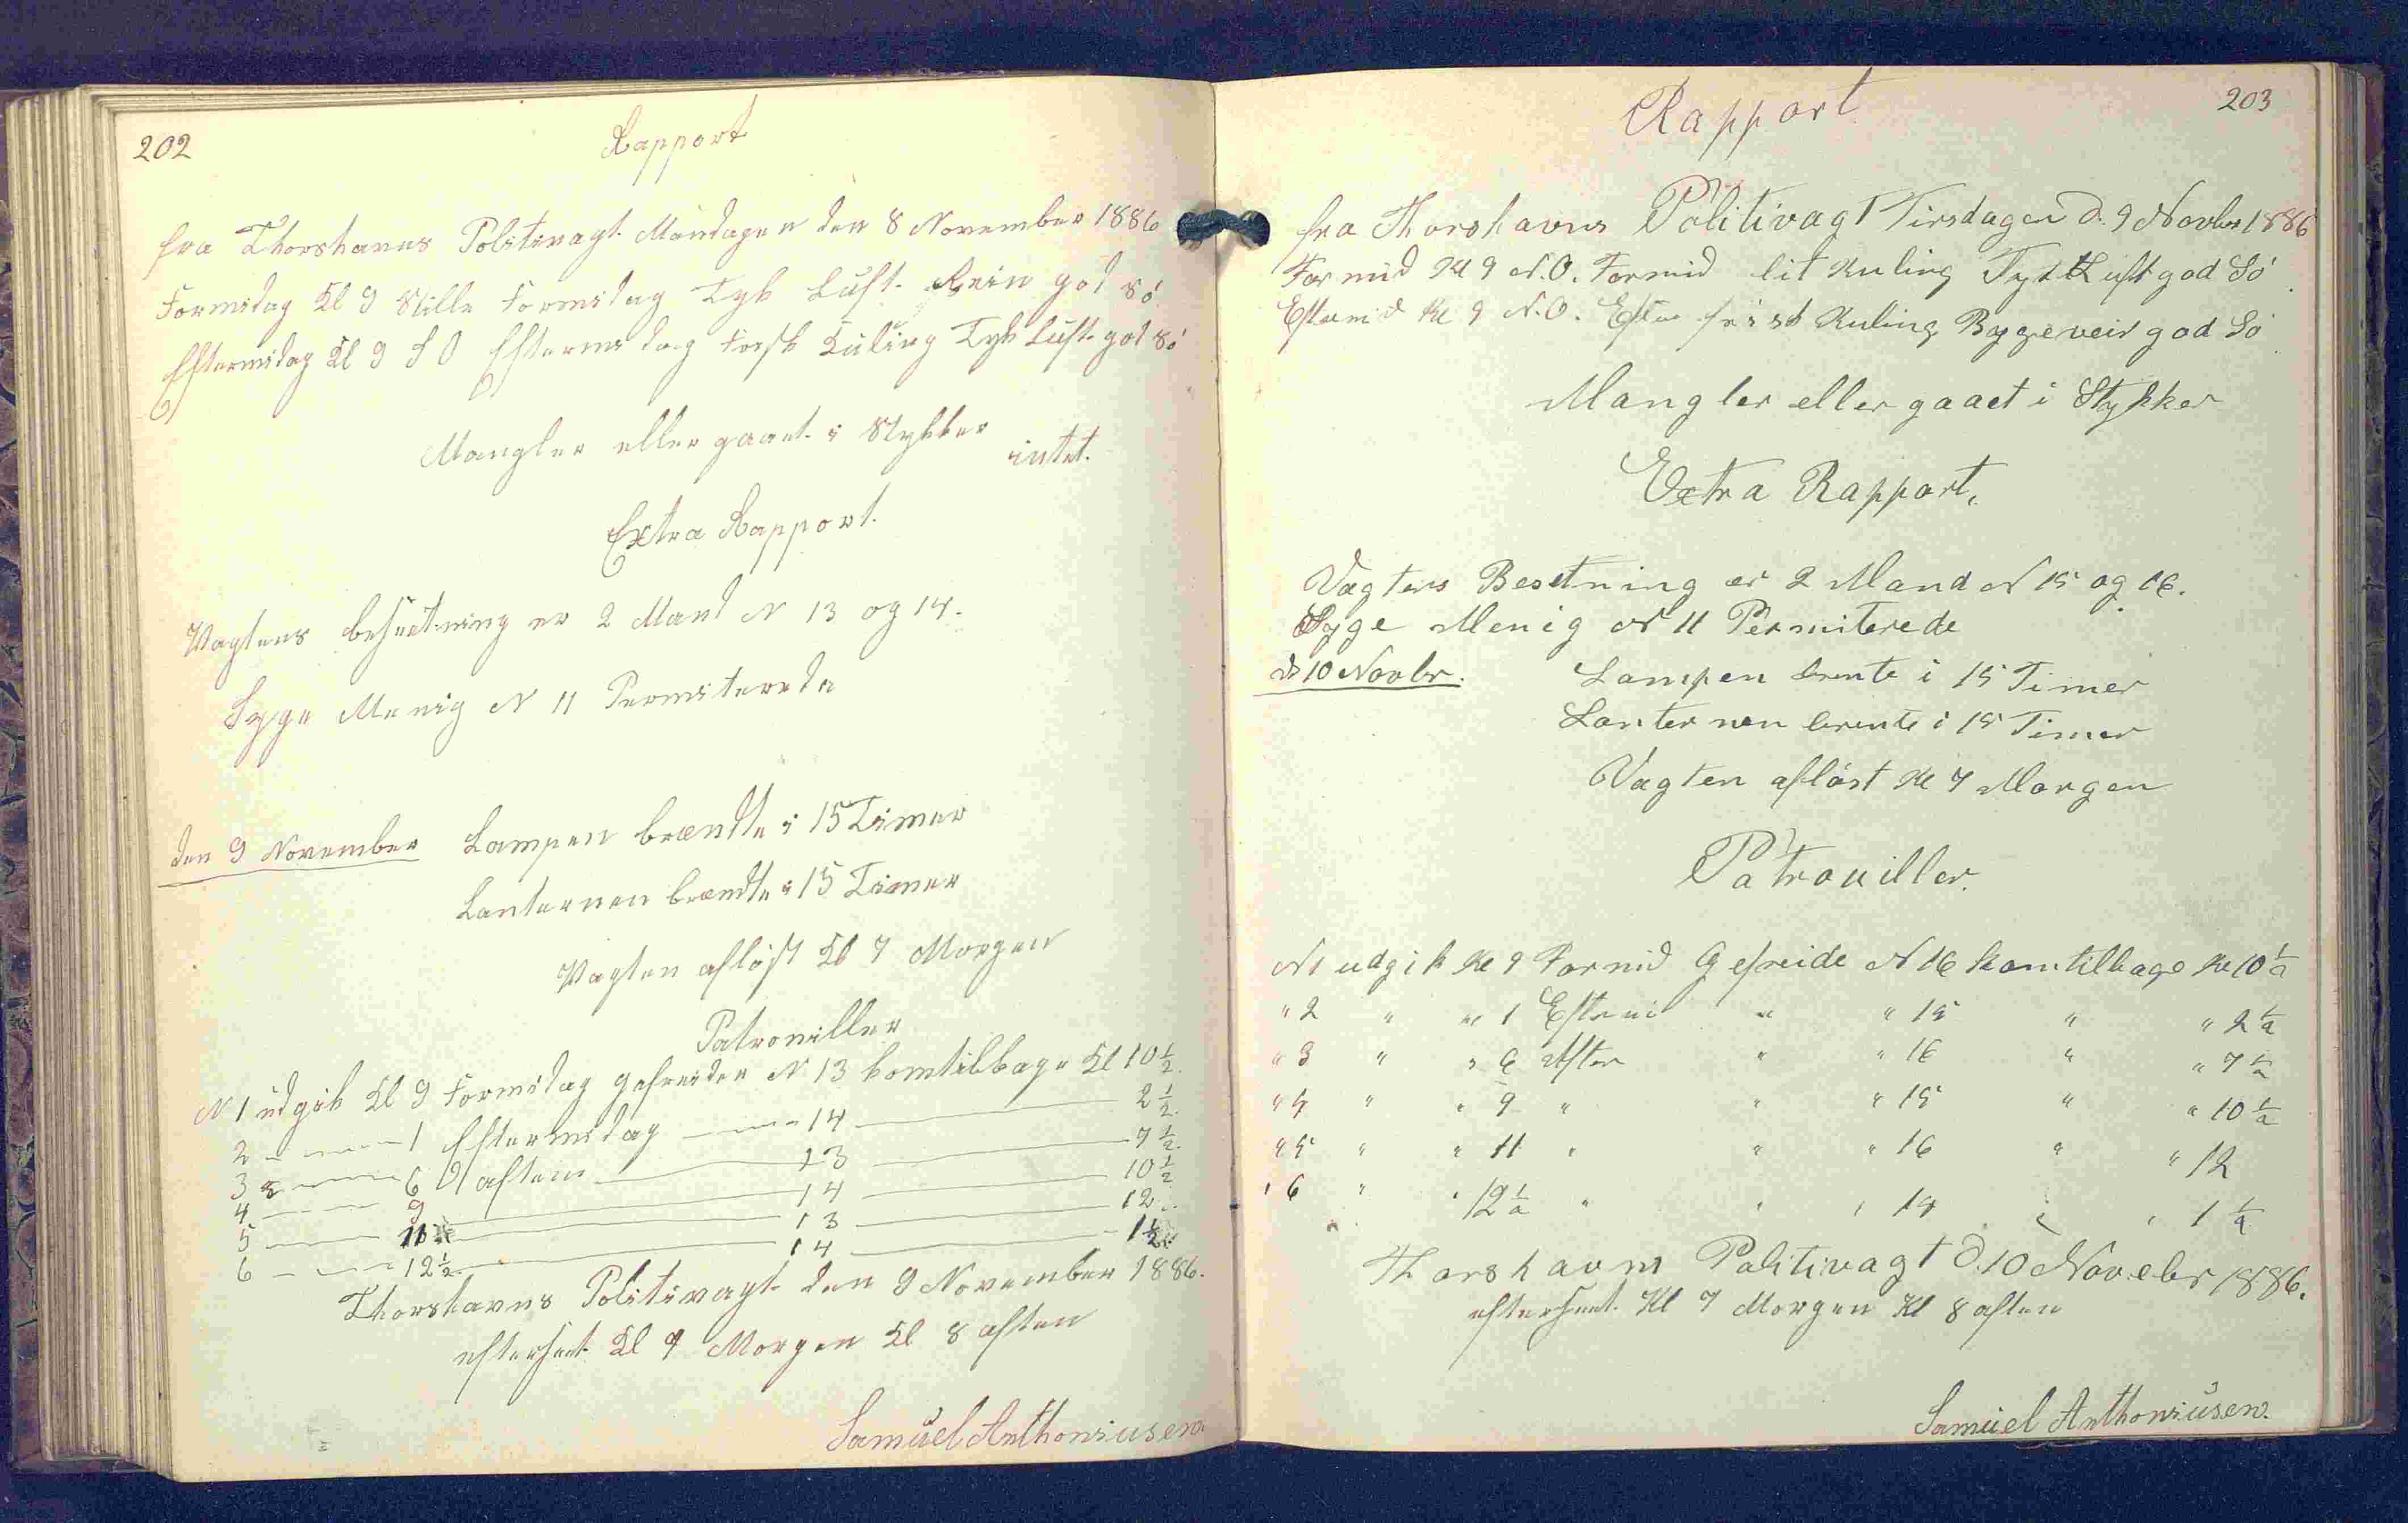 202
Rapport
fra Thorshavns Politivagt Mandagen den 8 November 1886
Formidag Kl 9 Stille Formidag Tyk Luft Rein god Sö
Eftermidag Kl 9 S O Eftermidag Forsk Kuling Tyk Luft god Sö
Mangler eller gaaet i Stykker
intet.
Extra Rapport.
Vagtens besætning er 2 Mand N 13 og 14.
Syge Menig N 11 Permiterede
den 9 November Lampen brændte i 15 Timer
Lanternen brændte i 15 Timer
Vagten aflöst Kl 7 Morgen
Patrouiller
N 1 udgik Kl 9 Formidag gefreider N 13 kom tilbage Kl 10 1/2
2 — — 1 Eftermidag — 14 — 2 1/2
3 — — 6 aften — 13 — 7 1/2
4 — — 9 — 14 — 10 1/2
5 — — 11 — 13 — 12
6 — — 12 1/2 — 14 — 1 1/2
Thorshavns Politivagt den 9 November 1886.
efterseet Kl 7 Morgen Kl 8 aften
Samuel Anthoniusen.
203
Rapport
fra Thorshavns Politivagt Tirsdagen d. 9 Novbr 1886
Formid Kl 9 N.O. Formid lit Kuling Tyk Luft god Sö
Eftermid Kl 9 N.O. Efter frisk Kuling Bygeveir god Sö
Mangler eller gaaet i Stykker
Extra Rapport.
Vagtens Besetning er 2 Mand N 15 og 16.
Syge Menig N 11 Permiterede
d. 10 Novbr. Lampen brente i 15 Timer
Lanternen brente i 15 Timer
Vagten aflöst Kl 7 Morgen
Patrouiller.
N 1 udgik Kl 9 Formid Gefreide N 16 kom tilbage Kl 10 1/2
" 2 " " 1 Eftermid " " 15 " " 2 1/2
" 3 " " 6 Aften " " 16 " " 7 1/2
" 4 " " 9 " " " 15 " " 10 1/2
" 5 " " 11 " " " 16 " " 12
" 6 " " 12 1/2 " " " 15 " " 1 1/2
Thorshavns Politivagt d. 10 Novebr 1886.
efterseet Kl 7 Morgen Kl 8 aften
Samuel Anthoniusen.